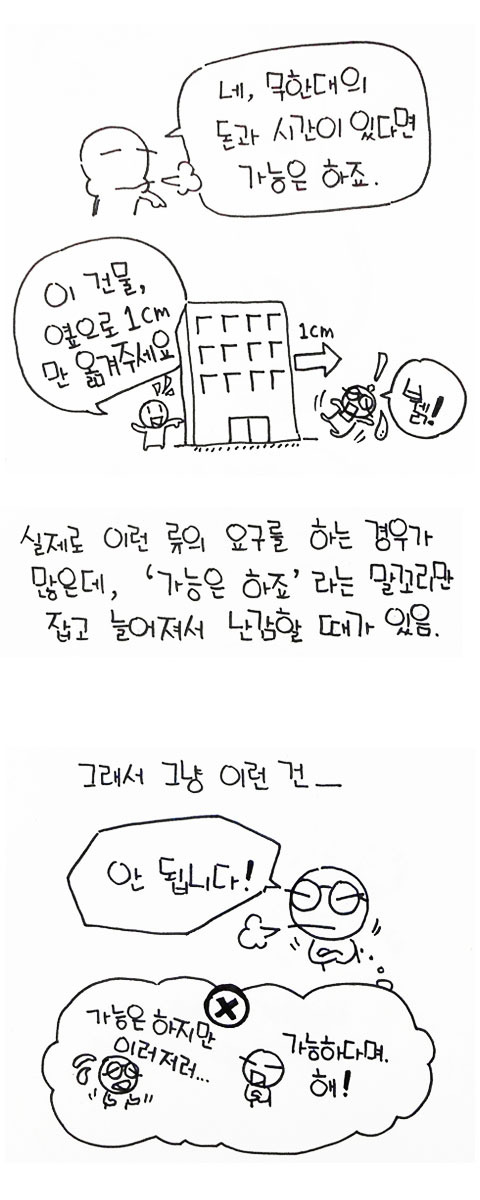 네, 무한대의
돈과 시간이 있다면
가능은 하죠.
이 건물,
옆으로 1cm
만 옮겨주세요
1cm
넭!
실제로 이런 류의 요구를 하는 경우가
많은데, '가능은 하죠' 라는 말꼬리만
잡고 늘어져서 난감할 때가 있음.
그래서 그냥 이런 건__
안 됩니다!
가능은 하지만
이러저러...
가능하다며.
해!